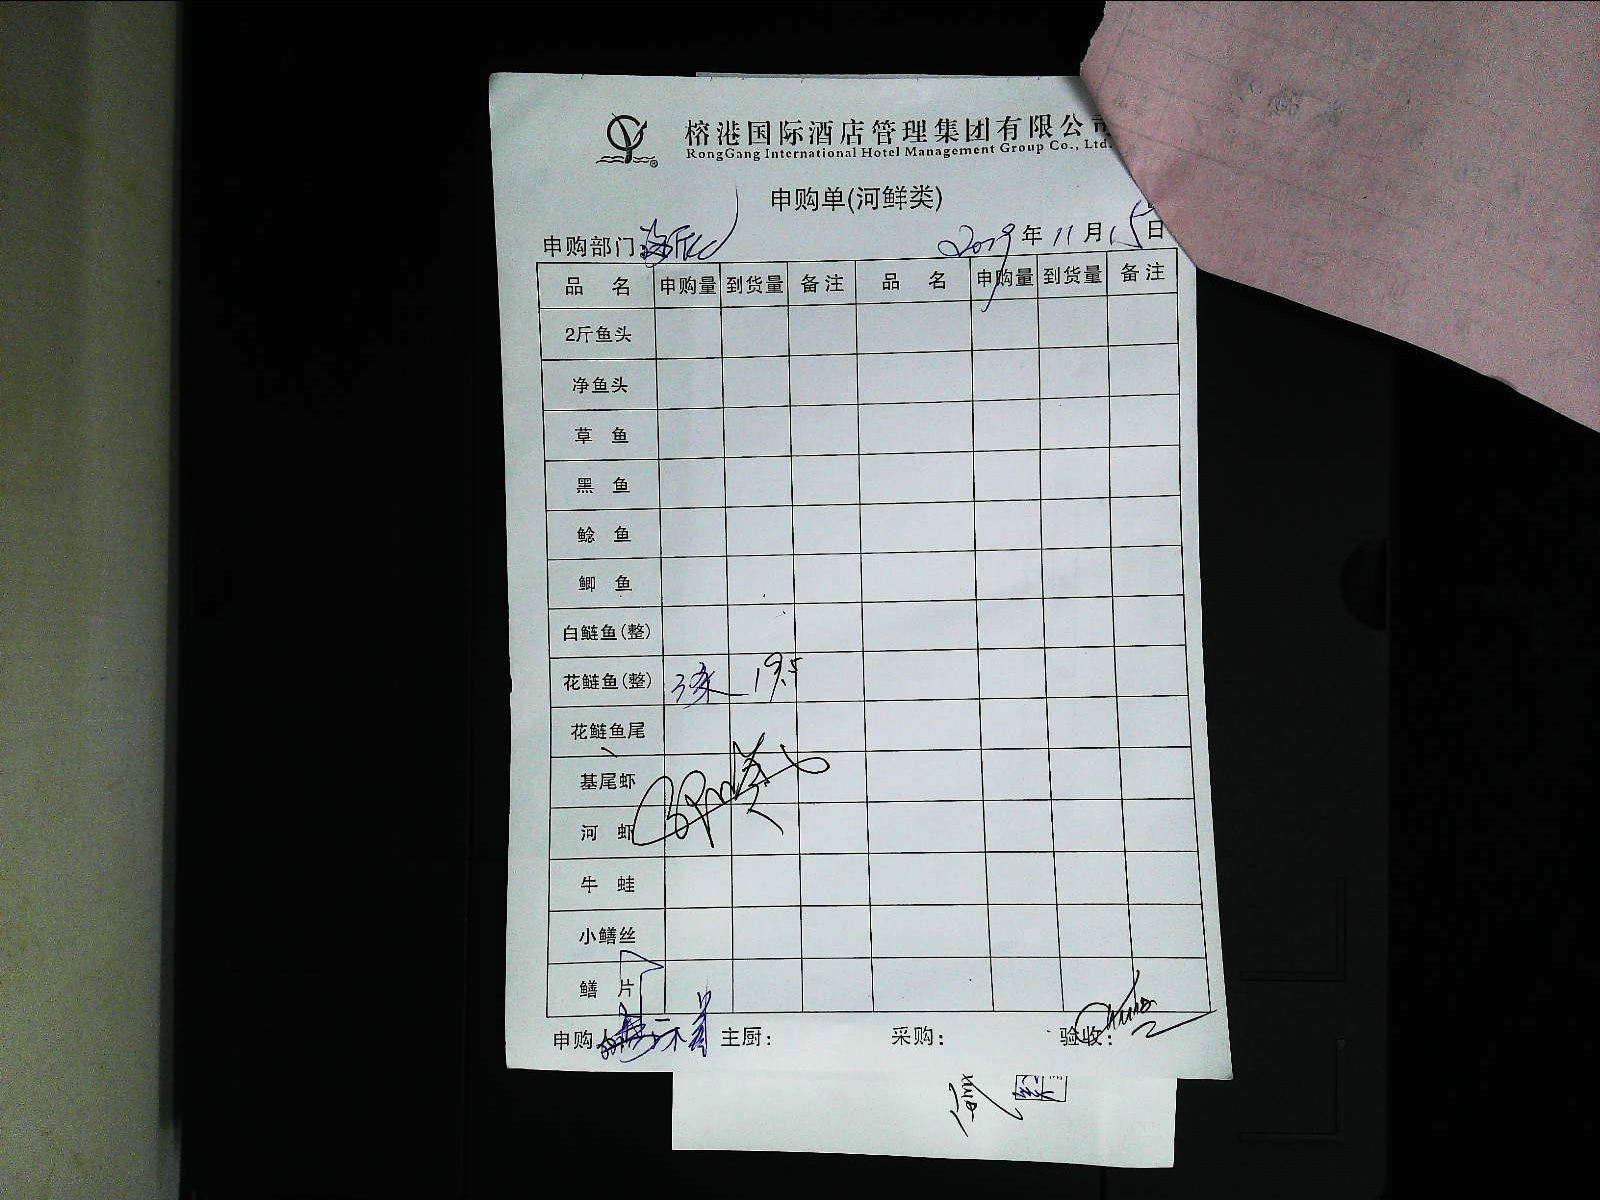 榕港国际酒店管理集团有限公司
RongGang International Hotel Management Group Co., Ltd.
申购单(河鲜类)
申购部门 2019年11月15日
品 名 申购量 到货量 备注 品 名 申购量 到货量 备注
2斤鱼头
净鱼头
草 鱼
黑 鱼
鲶 鱼
鲫 鱼
白鲢鱼(整)
花鲢鱼(整) 3条 19.5
花鲢鱼尾
基尾虾
河 虾
牛 蛙
小鳝丝
鳝 片
申购人 主厨: 采购: 验收: